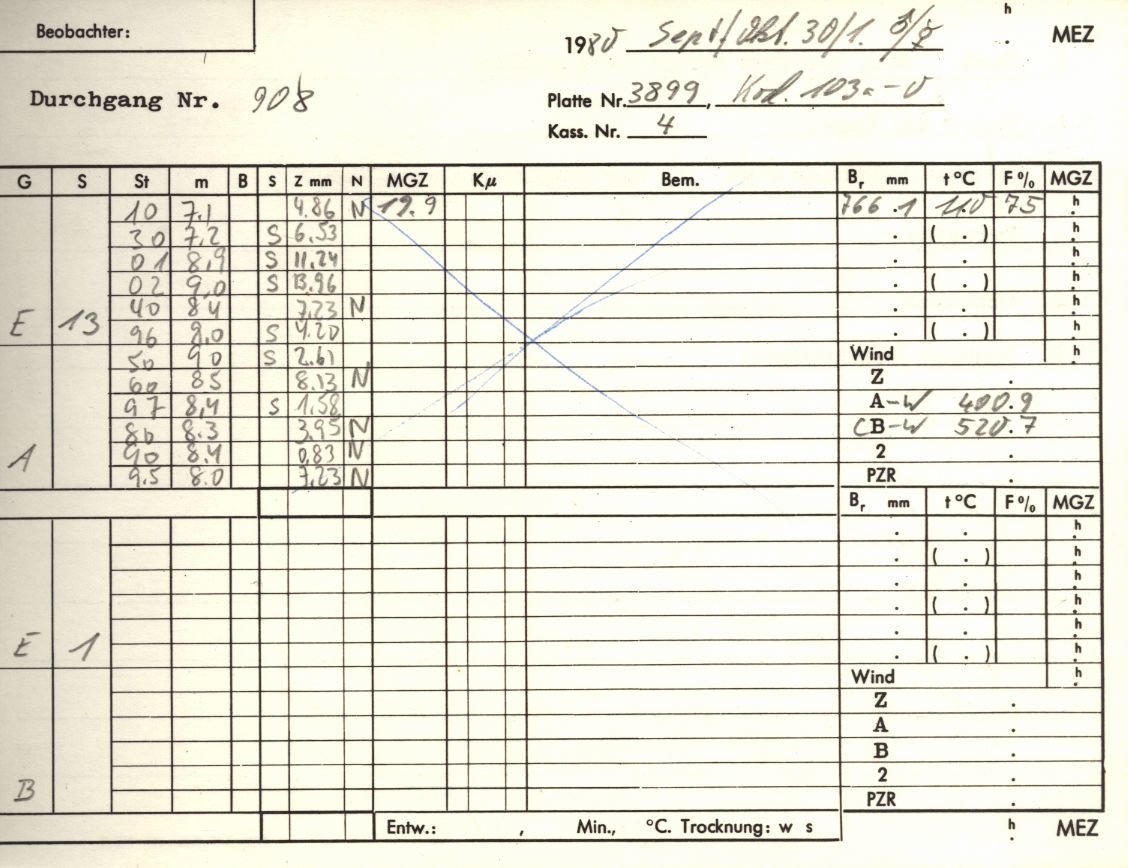 Beobachter:
1980 Sept/Okt. 30/1. h . MEZ
Durchgang Nr. 908
Platte Nr. 3899, Kod. 103a-O
Kass. Nr. 4
G S St m B S Z mm N MGZ Kμ Bem. Br mm t °C F % MGZ
10 7.1 4.86 N 19.9 766.1 11.0 75 h
30 7.2 S 6.53 . ( . ) h
01 8,9 S 11.24 . . h
02 9,0 S 13.96 . ( . ) h
40 8 4 7,23 N . . h
E 13 96 8,0 S 4.20 . ( . ) h
50 9 0 S 2.61 Wind h
60 85 8.13 N Z .
97 8,4 S 1,58 A-W 400.9
80 8.3 3,95 N CB-W 520.7
A 90 8.4 0,83 N 2 .
9.5 8.0 7,23 N PZR .
Br mm t °C F % MGZ
. . h
. ( . ) h
. . h
. ( . ) h
. . h
E 1 . ( . ) h
Wind h
Z .
A .
B .
B 2 .
PZR .
Entw.: , Min., °C. Trocknung: w s h . MEZ